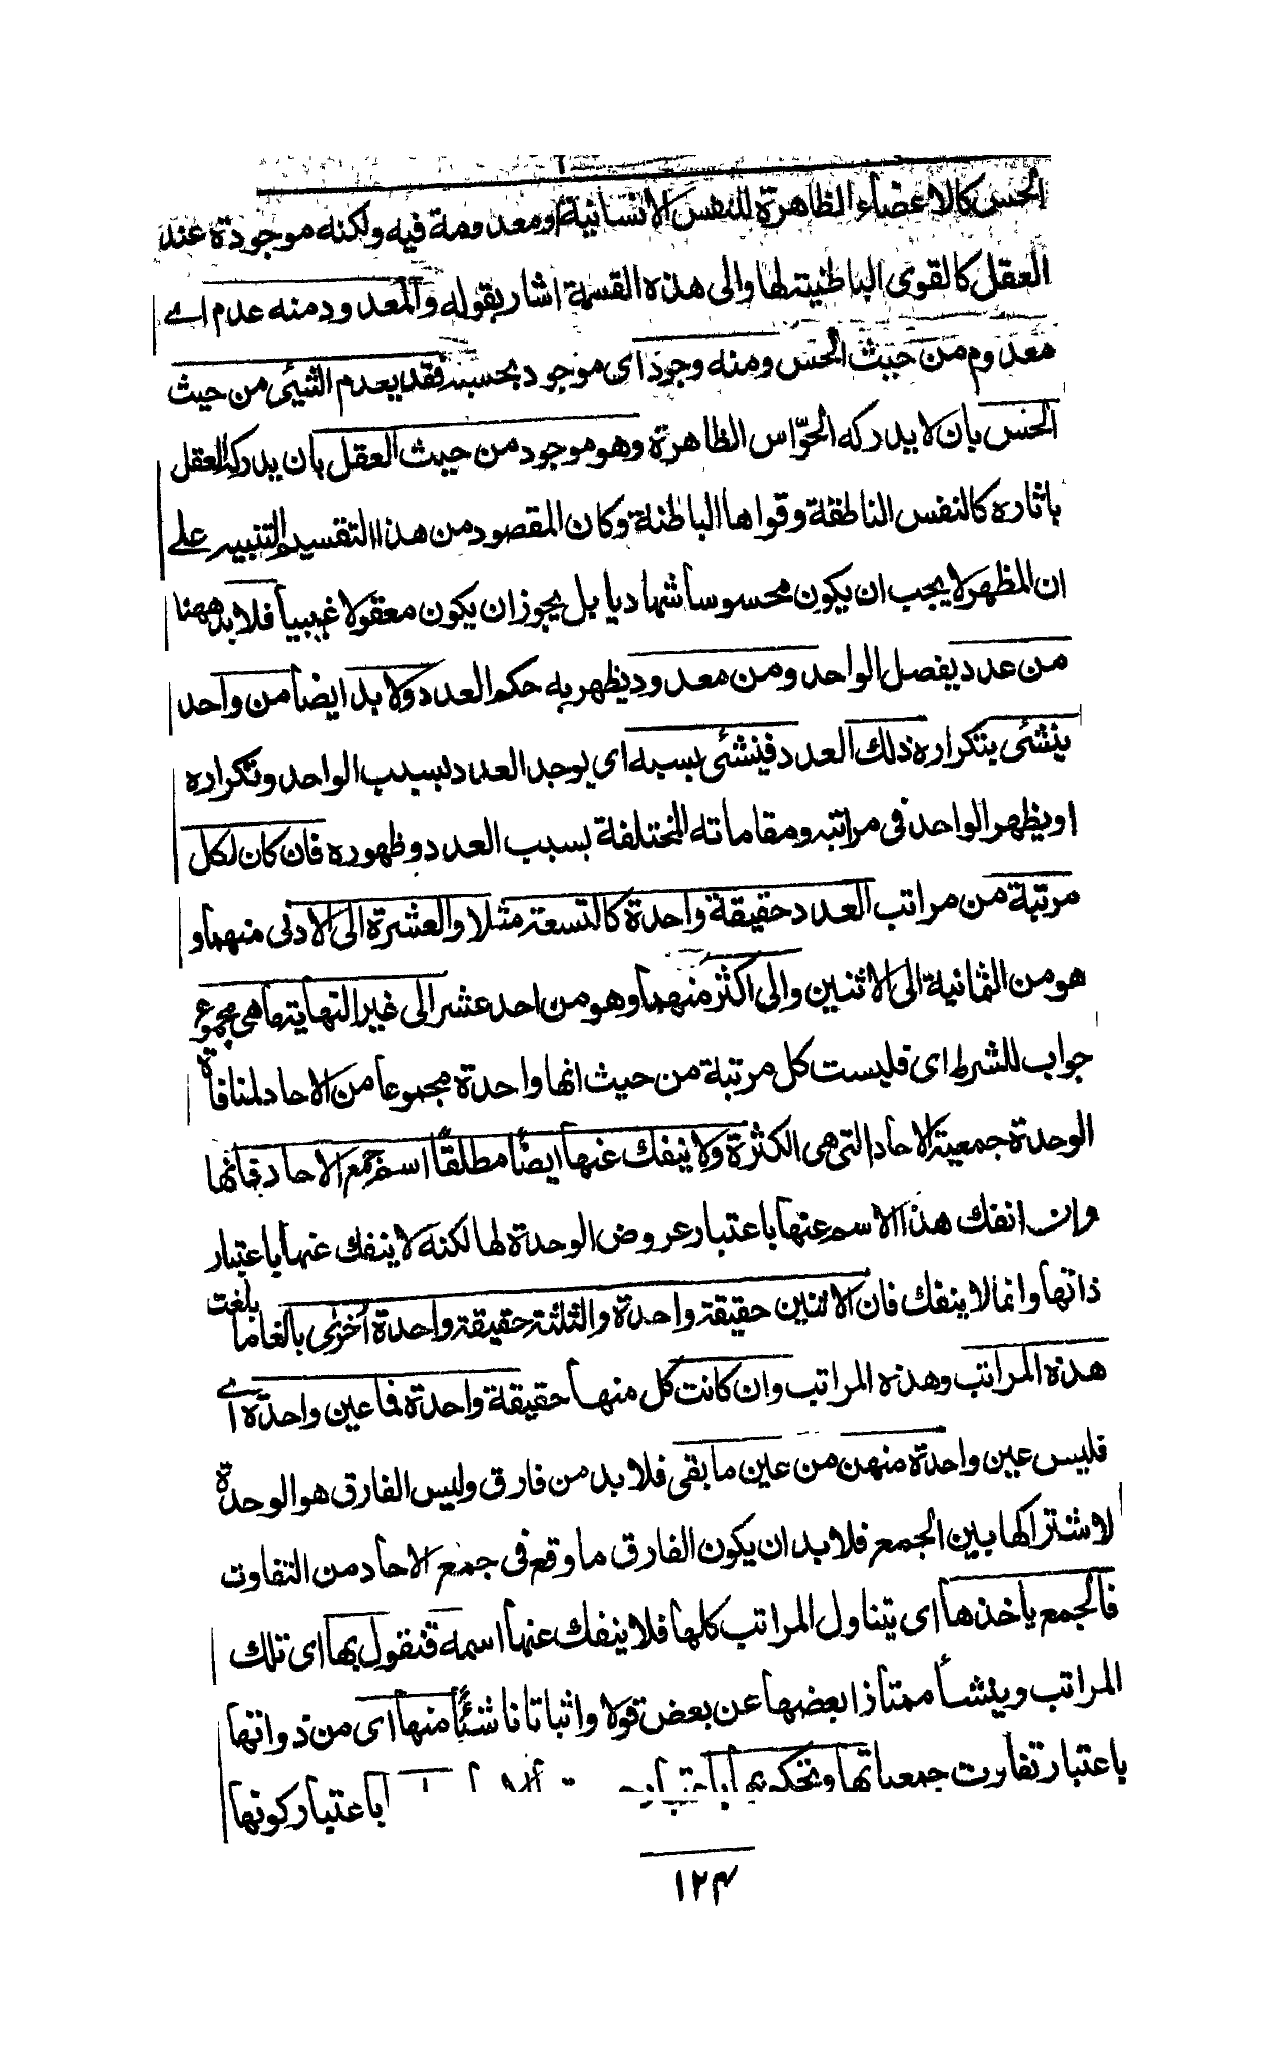 الحس كالاعضاء الظاهرة للنفس الانسانية او معدومة فيه ولكنه موجودة عند
العقل كالقوى الباطنية لها والى هذه القسمة اشار بقوله والمعدود منه عدم اے
معدوم من حيث الحس ومنه وجود اى موجود بحسبه فقد يعدم الشيئ من حيث
الحس بان لا يدركه الحوّاس الظاهرة وهو موجود من حيث العقل بان يدركه العقل
باثاره كالنفس الناطقة وقواها الباطنة وكان المقصود من هذا التقسيم التنبيه على
ان المظهر لا يجب ان يكون محسوسا شهاديا بل يجوز ان يكون معقولا غيبيا فلا بد ههنا
من عدد يفصل الواحد ومن معدود يظهر به حكم العدد ولا بد ايضا من واحد
ينشئ بتكراره ذلك العدد فينشئ بسببه اى يوجد العدد بسبب الواحد وتكراره
او يظهر الواحد فى مراتبه ومقاماته المختلفة بسبب العدد وظهوره فان كان لكل
مرتبة من مراتب العدد حقيقة واحدة كالتسعة مثلا والعشرة الى الادنى منهما و
هو من الثمانية الى الاثنين والى اكثر منهما وهو من احد عشر الى غير النهاية ما هى مجموع
جواب للشرط اى فليست كل مرتبة من حيث انها واحدة مجموعا من الاحاد لمنافاة
الوحدة جمعية الاحاد التى هى الكثرة ولا ينفك عنها ايضًا مطلقًا اسم جمع الاحاد فانها
وان انفك هذا الاسم عنها باعتبار عروض الوحدة لها لكنه لا ينفك عنها باعتبار
ذاتها وانما لا ينفك فان الاثنين حقيقة واحدة والثلثة حقيقة واحدة اخرى بالغا ما بلغت
هذه المراتب وهذه المراتب وان كانت كل منها حقيقة واحدة فما عين واحدة اے
فليس عين واحدة منهن من عين ما بقى فلا بد من فارق وليس الفارق هو الوحدة
لاشتراكها بين الجمع فلا بد ان يكون الفارق ما وقع فى جمع الاحاد من التفاوت
فالجمع ياخذها اى يتناول المراتب كلها فلا ينفك عنها اسمه فنقول بها اى تلك
المراتب وينشأ ممتازا بعضها عن بعض قولا واثباتا ناشئًا منها اى من ذواتها
باعتبار تفاوت جمعياتها ونحكم بها باعتبار كونها
۱۲۴